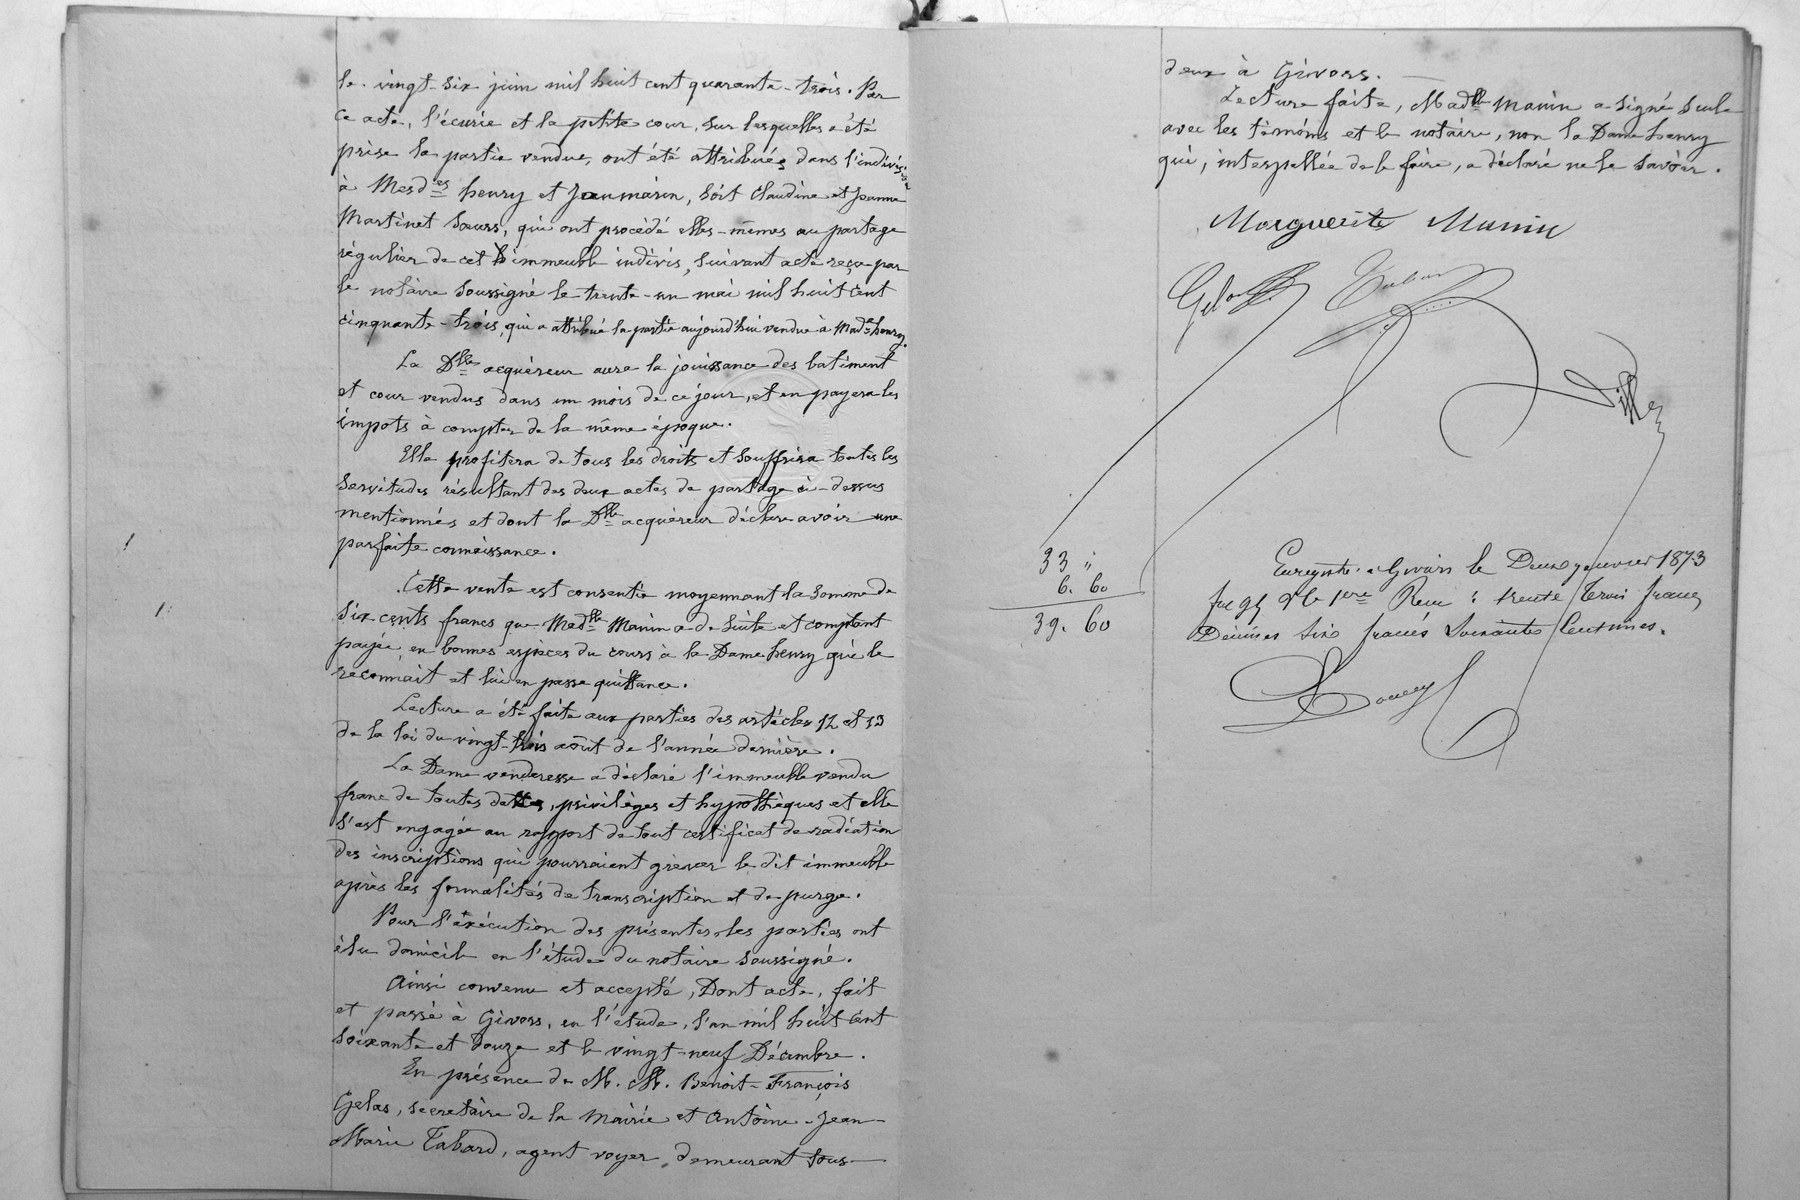 le vingt-six juin mil huit cent quarante-trois. Par
ce acte, l'écurie et la petite cour, sur lesquelles a été
prise la partie vendue, ont été attribuées dans l'indivision
à Mesdes henry et Jeanmarin, soit Claudine et Jeanne
Martinet sœurs, qui ont procédé elles-mêmes au partage
régulier de cet immeuble indivis, suivant acte reçu par
le notaire soussigné le trente-un mai mil huit cent
cinquante-trois, qui a attribué la partie aujourd'hui vendue à Made henry.
La Dlle acquéreur aura la jouissance des batiment
et cour vendus dans un mois de ce jour, et en payera les
impots à compter de la même époque.
Elle profitera de tous les droits et souffrira toutes les
servitudes résultant des deux actes de partage ci-dessus
mentionnés et dont la Dlle acquéreur déclare avoir une
parfaite connaissance.
Cette vente est consentie moyennant la somme de
six cents francs que Madlle Manin a de suite et comptant
payée en bonnes espèces du cours à la Dame henry qui le
reconnait et lui en passe quittance.
Lecture a été faite aux parties des articles 12 et 13
de la loi du vingt-trois août de l'année dernière.
La Dame venderesse a déclaré l'immeuble vendu
franc de toutes dettes, privilèges et hypothèques et elle
s'est engagée au rapport de tout certificat de radiation
des inscriptions qui pourraient grever le dit immeuble
après les formalités de transcription et de purge.
Pour l'exécution des présentes les parties ont
élu domicile en l'étude du notaire soussigné.
Ainsi convenu et accepté, Dont acte, fait
et passé à Givors, en l'étude, l'an mil huit cent
soixante et douze et le vingt-neuf Décembre.
En présence de M. M. Benoit-François
Gelas, secretaire de la Mairie et Antoine-Jean-
Marie Tabard, agent voyer, demeurant tous
deux à Givors.
Lecture faite, Madlle Manin a signé seule
avec les témoins et le notaire, non la Dame henry
qui, interpellée de le faire, a déclaré ne le savoir.
Marguerite Manin
Gelas Tabard
33 "
6. 60
39. 60
Enregistré à Givors le Deux janvier 1873
fo 95 Vo c 1ere Reçu : trente trois francs
Décimes Six francs Soixante Centimes.